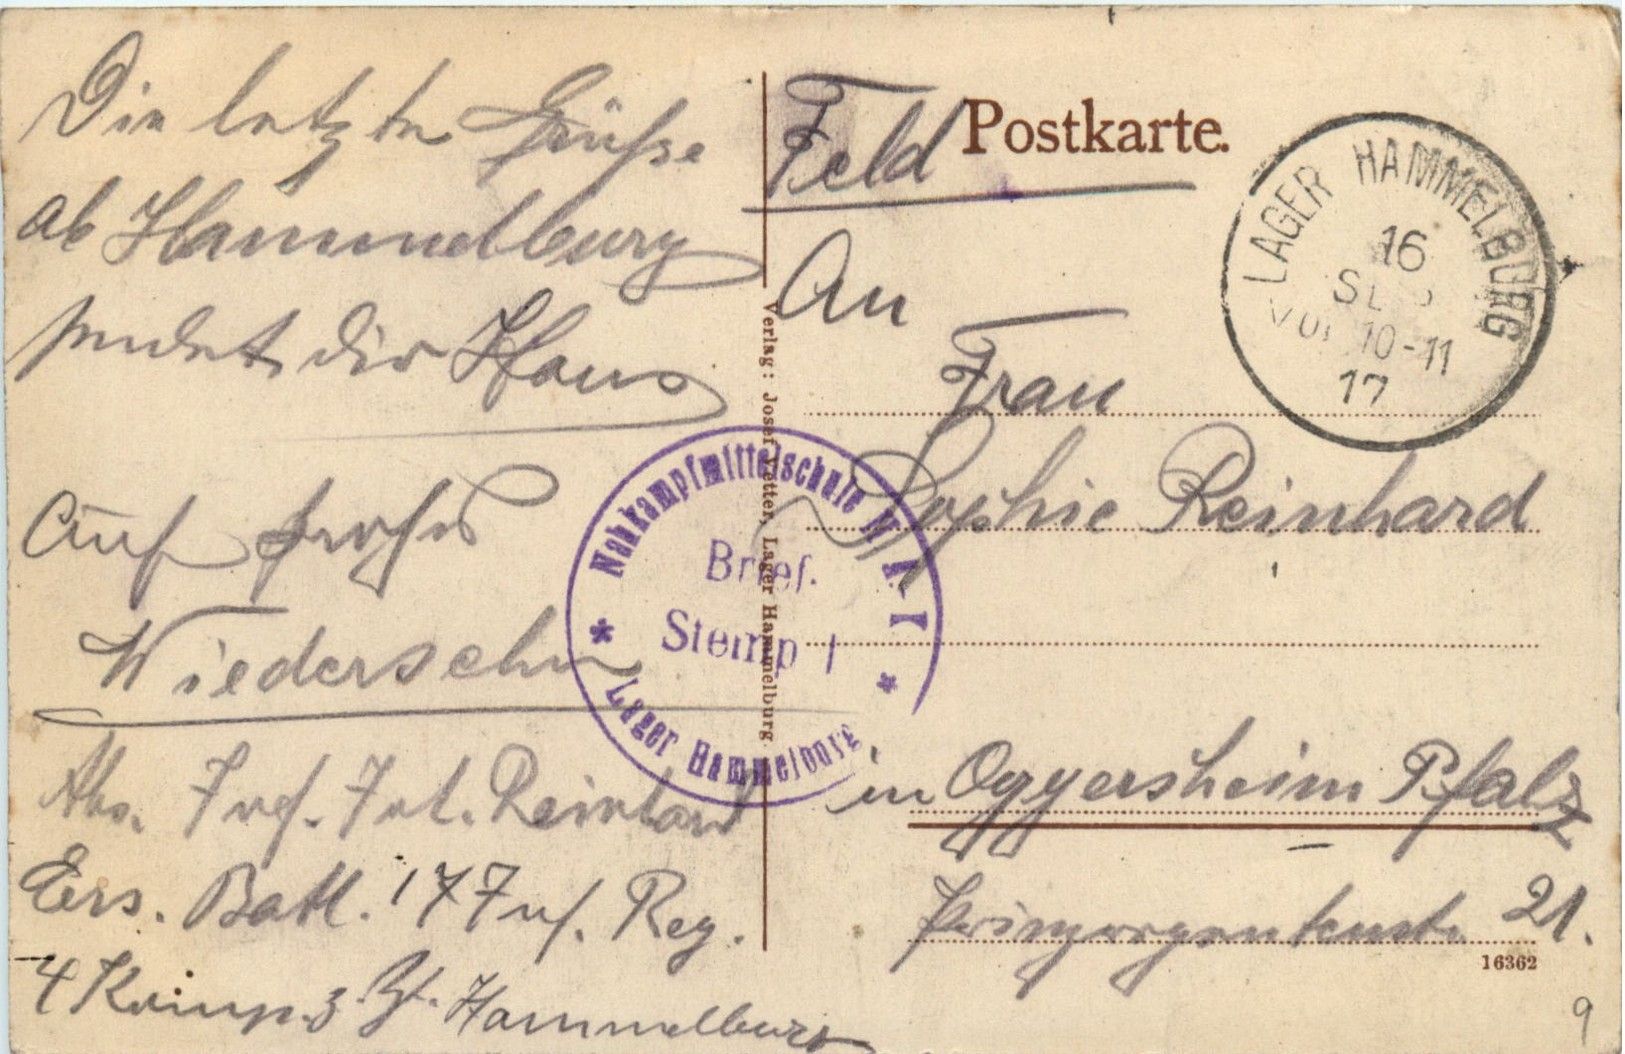 Die letzten Grüße
ab Hammelburg
sendet dir Hans
Auf frohes
Wiedersehn
Abs. Inf. Reinhard
Ers. Batl. 17 Inf. Reg.
4 Komp. z. Zt. Hammelburg
Feld Postkarte.
An
Frau
Sophie Reinhard
in Oggersheim Pfalz
21.
16362
9
LAGER HAMMELBURG
16
SEP
VOR 10-11
17
Nahkampfmittelschule
Brief.
Stemp
Lager Hammelburg
Verlag: Josef Vetter, Lager Hammelburg.